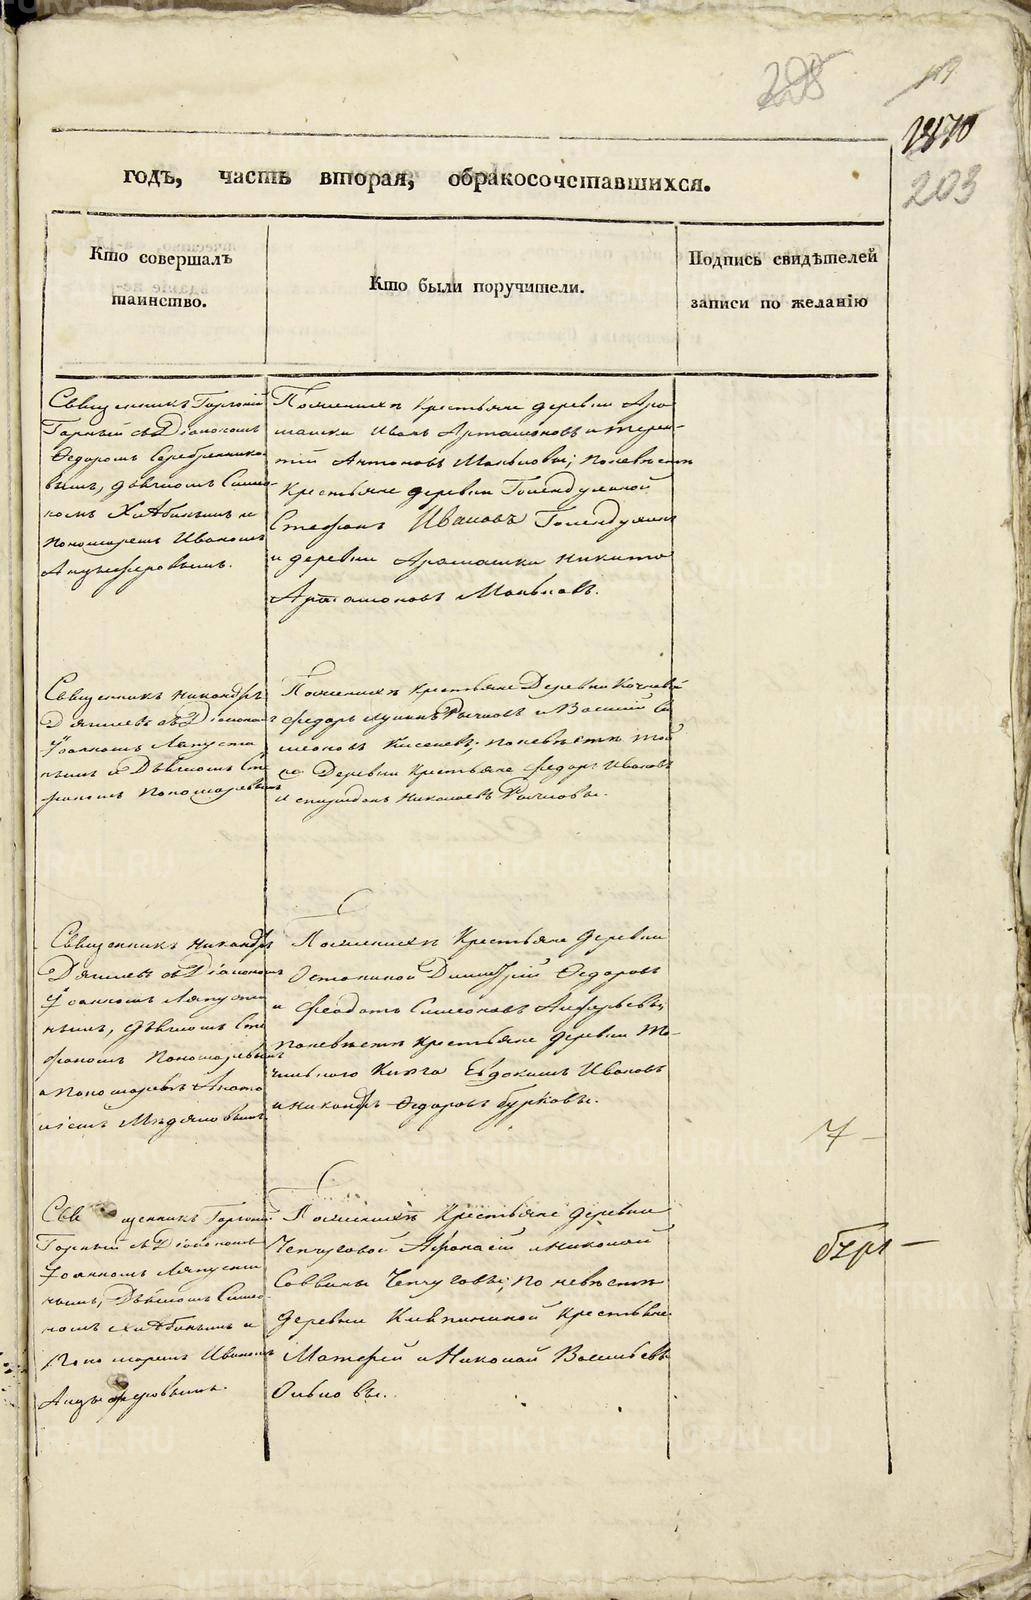 203
годъ, часть вторая, обракосочетавшихся.
Кто совершалъ
таинство.
Кто были поручители.
Подпись свидѣтелей
записи по желанію
Священникъ Георгій
Горный съ Діакономъ
Ѳедоромъ Серебренико
вымъ, дьячкомъ Симео
номъ Хлабинымъ и
пономаремъ Иваномъ
Анцыферовымъ.
По женихѣ крестьяне деревни Ара
машки Иванъ Артамоновъ и Терен
тій Антоновъ Маньковы; по невѣстѣ
крестьяне деревни Голендухиной
Стефанъ Ивановъ Голендухинъ
и деревни Арамашки Никита
Артамоновъ Маньковъ.
Священникъ Никандръ
Дягилевъ съ Діакономъ
Іоанномъ Ляпусти
нымъ и Дьячкомъ Сте
фаномъ Пономаревымъ
По женихѣ крестьяне Деревни Кочневой
Федоръ Рычковъ и Василій Си
меоновъ Киселевъ; по невѣстѣ той
же Деревни крестьяне Федоръ Ивановъ
и Спиридонъ Николаевъ Рычковы.
Священникъ Никандръ
Дягилевъ съ Діакономъ
Іоанномъ Ляпусти
нымъ, дьячкомъ Сте
фаномъ Пономаревымъ
и пономаремъ
Мѣдяковымъ.
По женихѣ крестьяне деревни
Останиной Димитрій Ѳедоровъ
и Феодотъ Симеоновъ
по невѣстѣ крестьяне деревни То
чильнаго Ключа Евдокимъ Ивановъ
и Никандръ Ѳедоровъ Бурковы.
Священникъ Георгій
Горный съ Діакономъ
Іоанномъ Ляпусти
нымъ, Дьячкомъ Симео
номъ Хлабинымъ и
Пономаремъ Иваномъ
Анцыферовымъ.
По женихѣ крестьяне деревни
Чепчуговой Афанасій и Николай
Саввины Чепчуговы; по невѣстѣ
деревни Клевакиной крестьяне
Матфей и Николай Васильевы
7 –
METRIKI.GASO-URAL.RU